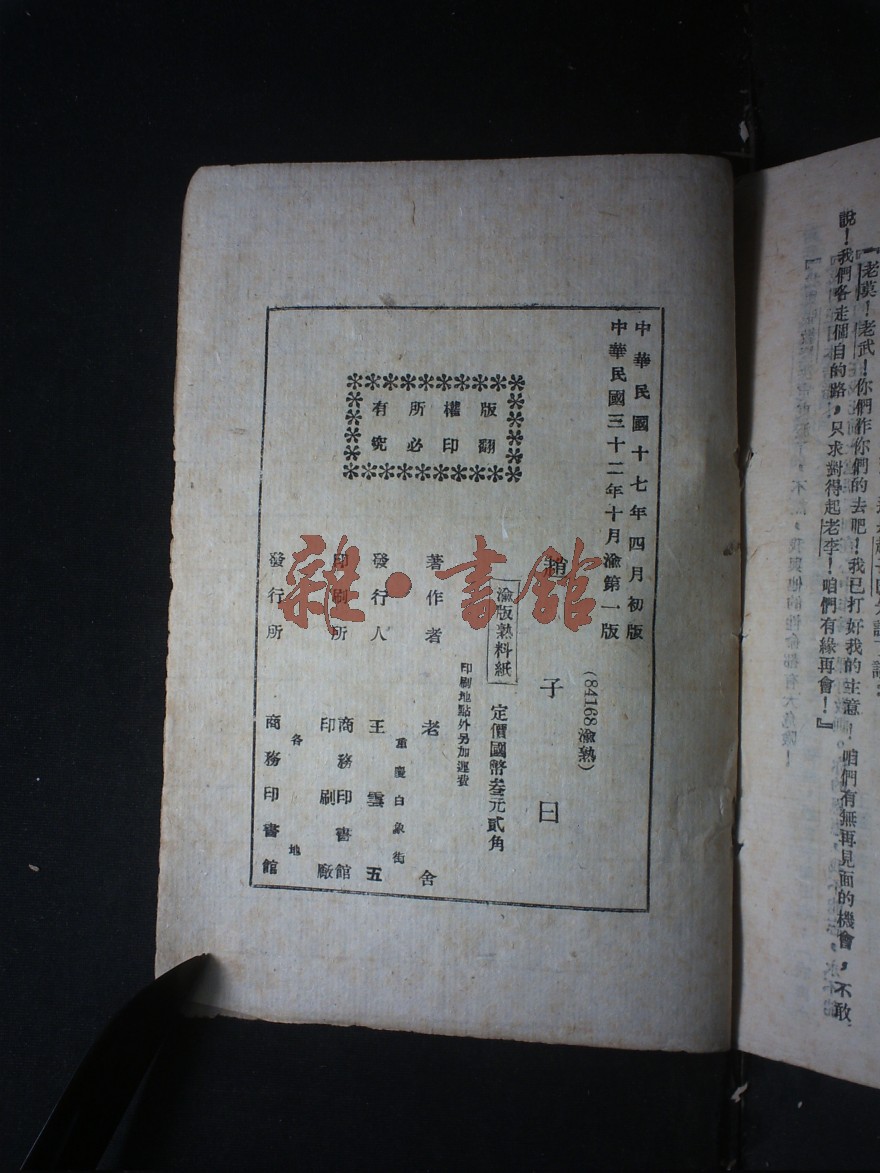 說！我們各走個自的路，只求對得起老李！咱們有緣再會！』
『老莫！老武！你們作你們的去吧！我已打好我的主意！咱們有無再見面的機會，不敢
中華民國十七年四月初版
中華民國三十二年十月渝第一版
(84168渝熟)
趙子曰
渝版熟料紙
定價國幣叁元貳角
印刷地點外另加運費
著作者 老舍
重慶白象街
發行人 王雲五
印刷所 商務印書館印刷廠
發行所 各地 商務印書館
版權所有
翻印必究
雜·書館